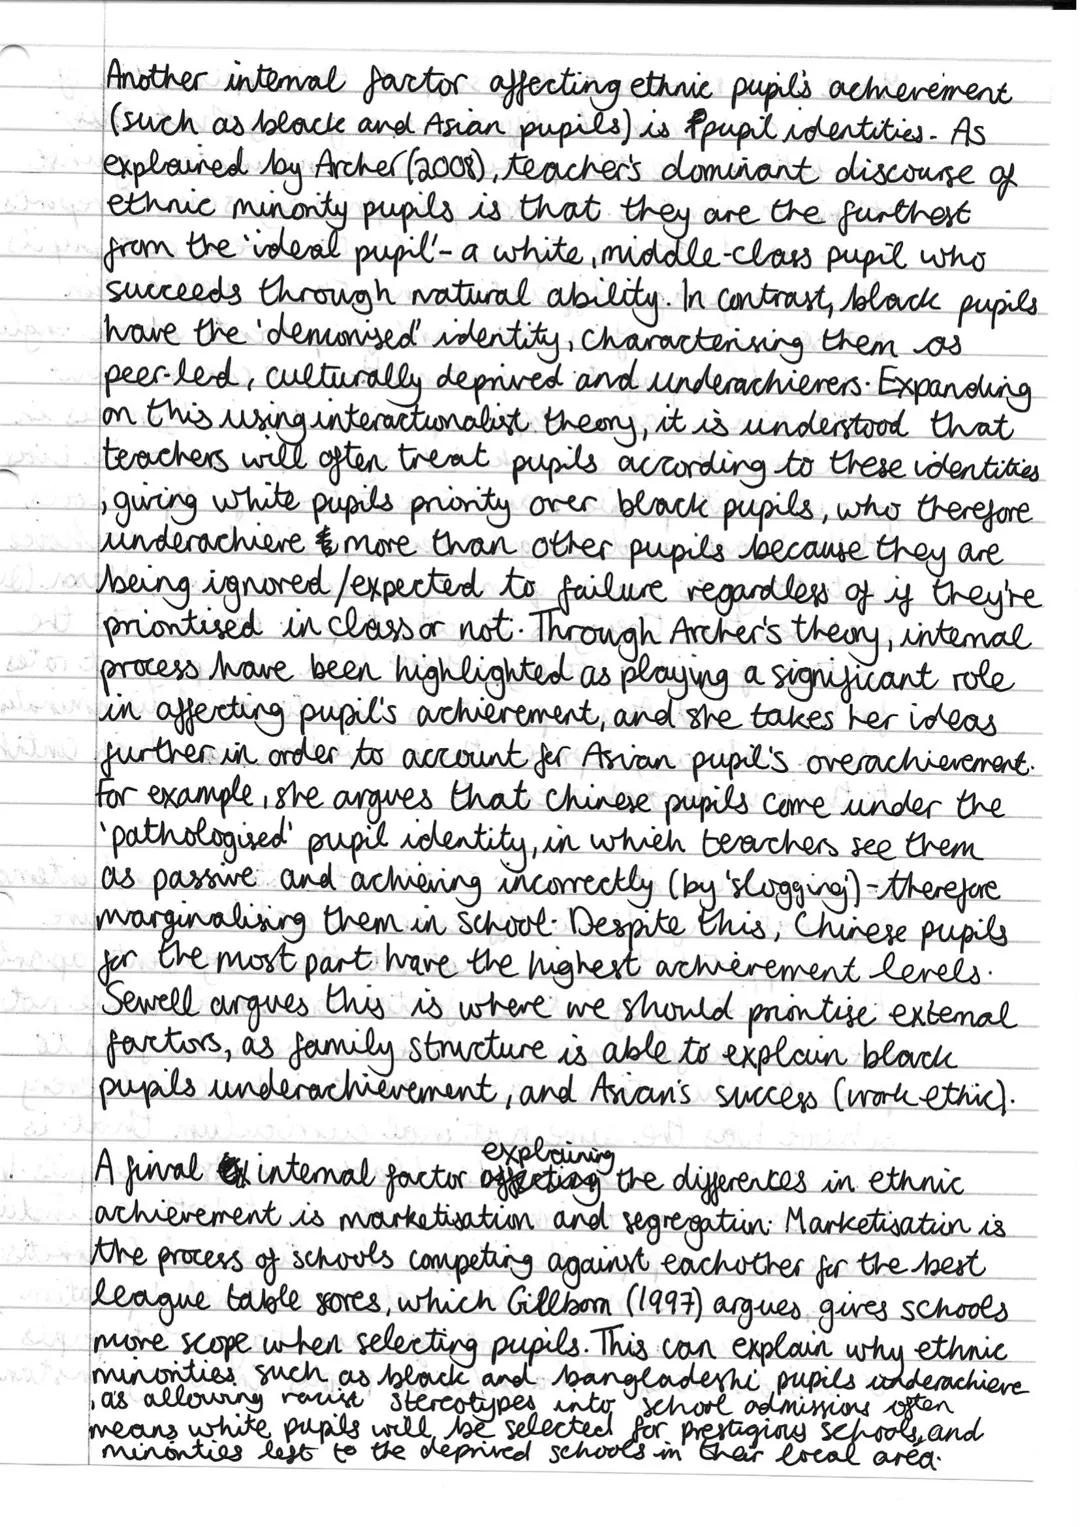 Another internal factor affecting ethnic pupil's achievement
(such as black and Asian pupils) is pupil identities. As
explained by Archer (2008), teacher's dominant discourse of
ethnic minority pupils is that they are the furthest
from the 'ideal pupil' - a white, middle-class pupil who
succeeds through natural ability. In contrast, black pupils
have the 'demonised' identity, characterising them as
peer-led, culturally deprived and underachievers. Expanding
on this using interactionalist theory, it is understood that
teachers will often treat pupils according to these identities
, giving white pupils priority over black pupils, who therefore
underachieve more than other pupils because they are
being ignored/expected to failure regardless of if they're
prioritised in class or not. Through Archer's theory, internal
process have been highlighted as playing a significant role
in affecting pupil's achievement, and she takes her ideas
further in order to account for Asian pupil's overachievement.
For example, she argues that Chinese pupils come under the
'pathologised' pupil identity, in which teachers see them
as passive and achieving incorrectly (by 'slogging') - therefore
marginalising them in school. Despite this, Chinese pupils
for the most part have the highest achievement levels.
Sewell argues this is where we should prioritise external
factors, as family structure is able to explain black
pupils underachievement, and Asian's success (work ethic).
A final internal factor explaining the differences in ethnic
achievement is marketisation and segregation. Marketisation is
the process of schools competing against eachother for the best
league table sores, which Gillborn (1997) argues gives schools
more scope when selecting pupils. This can explain why ethnic
minorities such as black and bangladeshi pupils underachieve
, as allowing racist stereotypes into school admissions often
means white pupils will be selected for prestigious schools, and
minorities left to the deprived schools in their local area.